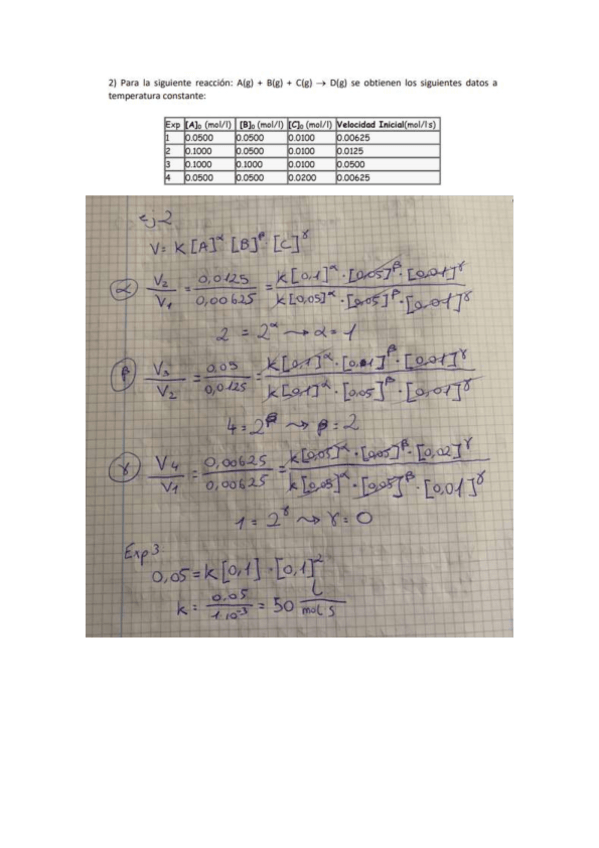 2) Para la siguiente reacción: A(g) + B(g) + C(g) → D(g) se obtienen los siguientes datos a
temperatura constante:
Exp [A]₀ (mol/l) [B]₀ (mol/l) [C]₀ (mol/l) Velocidad Inicial(mol/l s)
1 0.0500 0.0500 0.0100 0.00625
2 0.1000 0.0500 0.0100 0.0125
3 0.1000 0.1000 0.0100 0.0500
4 0.0500 0.0500 0.0200 0.00625
Ej 2
V = K [A]^α [B]^β [C]^γ
α V₂/V₁ = 0,0125/0,00625 = k[0,1]^α · [0,05]^β · [0,01]^γ / k[0,05]^α · [0,05]^β · [0,01]^γ
2 = 2^α → α = 1
β V₃/V₂ = 0,05/0,0125 = k[0,1]^α · [0,01]^β · [0,01]^γ / k[0,1]^α · [0,05]^β · [0,01]^γ
4 = 2^β → β = 2
γ V₄/V₁ = 0,00625/0,00625 = k[0,05]^α · [0,05]^β · [0,02]^γ / k[0,05]^α · [0,05]^β · [0,01]^γ
1 = 2^γ → γ = 0
Exp 3
0,05 = k[0,1] · [0,1]²
k = 0,05/1·10⁻³ = 50 l/mol·s